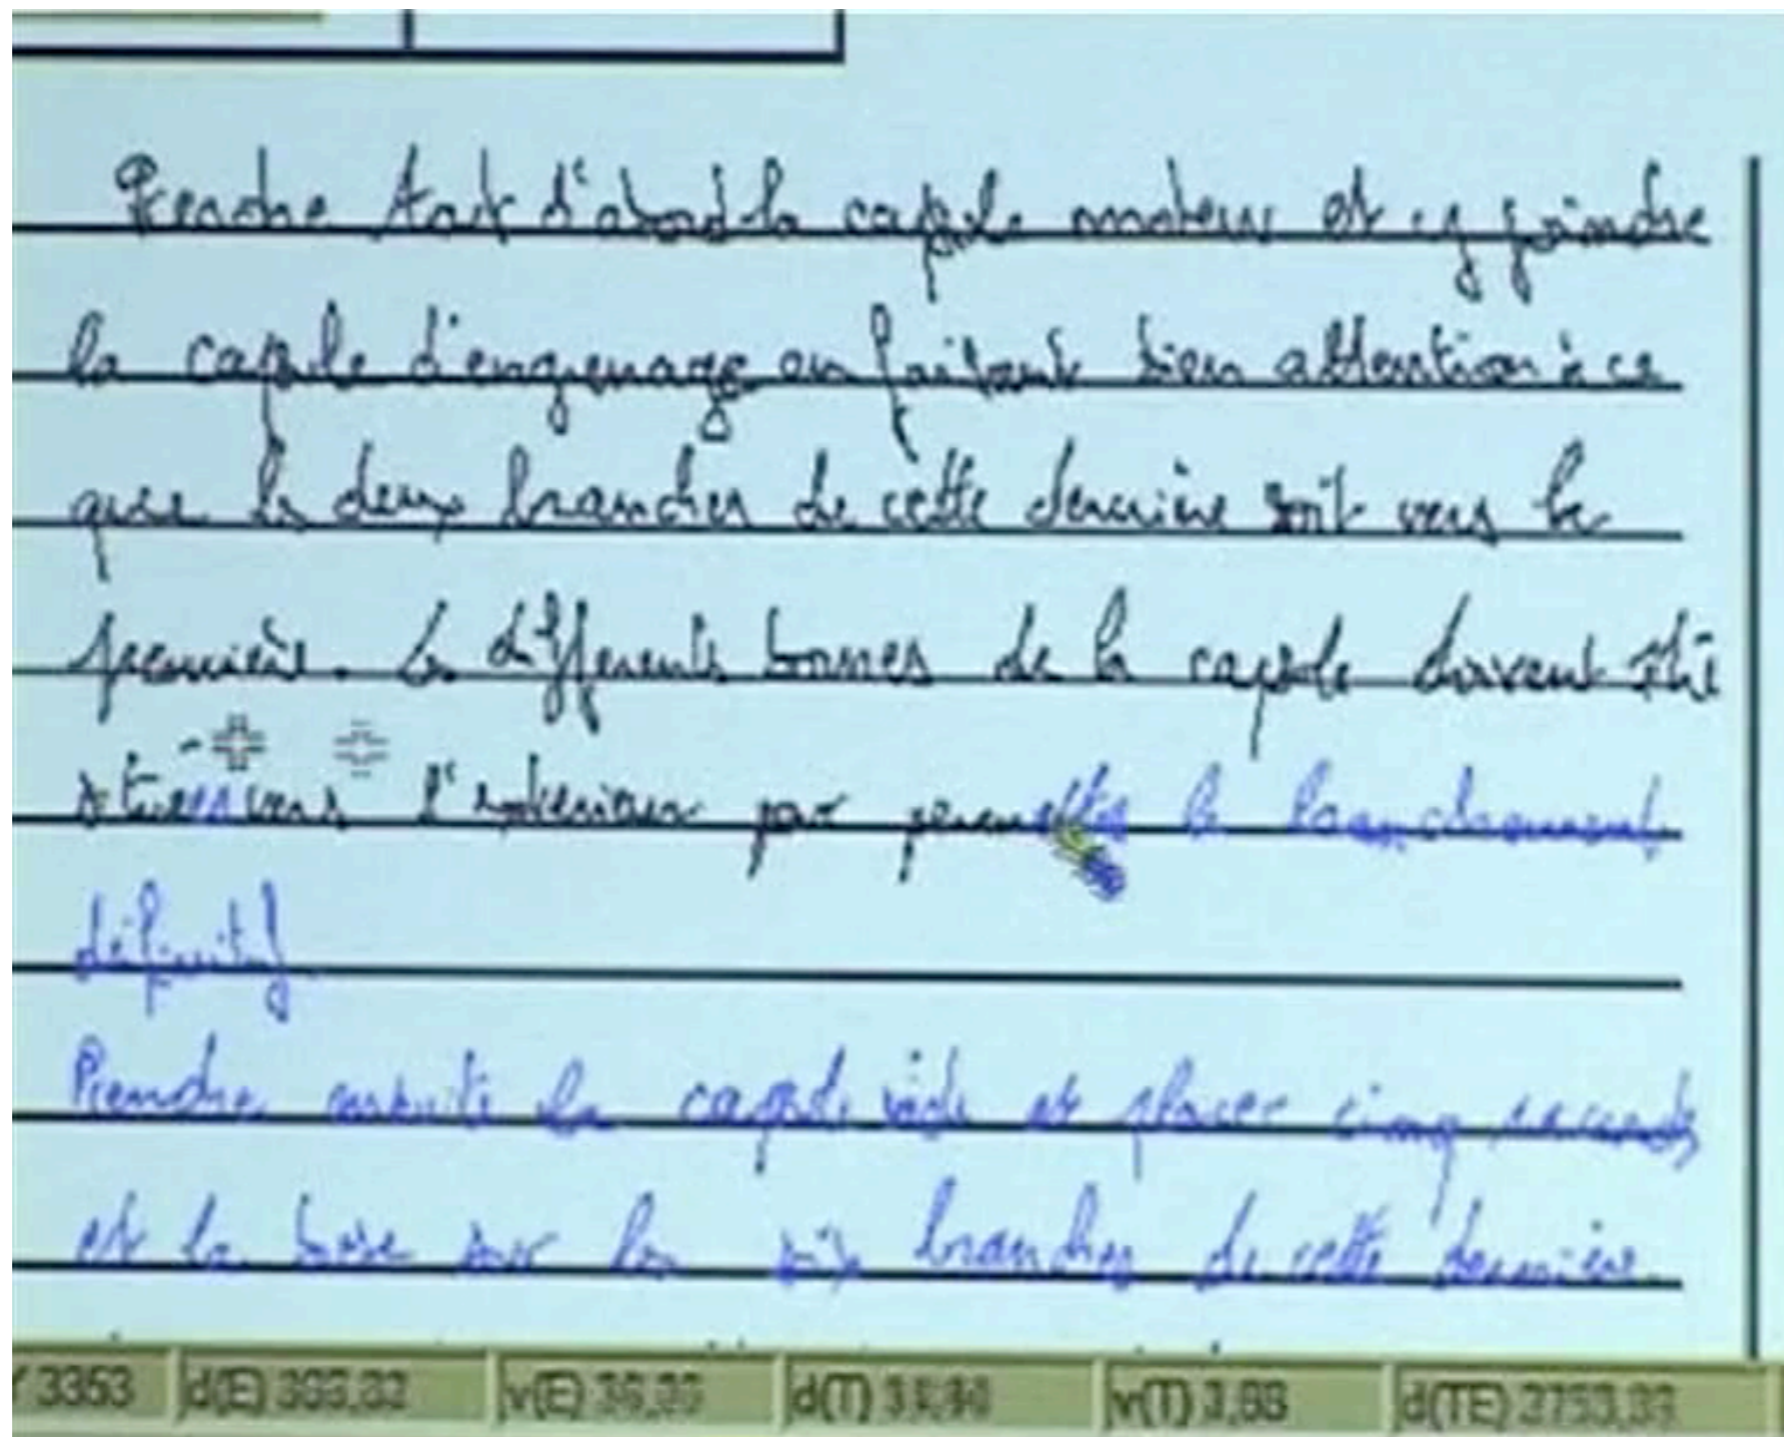 Prendre tout d'abord la capsule moteur et y joindre
la capsule d'engrenage en faisant bien attention à ce
que les deux branches de cette dernière soit vers la
première. Les différents bornes de la capsule doivent
vers l'extérieur pour permettre le branchement
définitif.
Prendre ensuite la capsule vide et placer cinq
et la base sur les six branches de cette dernière.
Y 3353 d(E) v(E) d(T) v(T) d(TE)